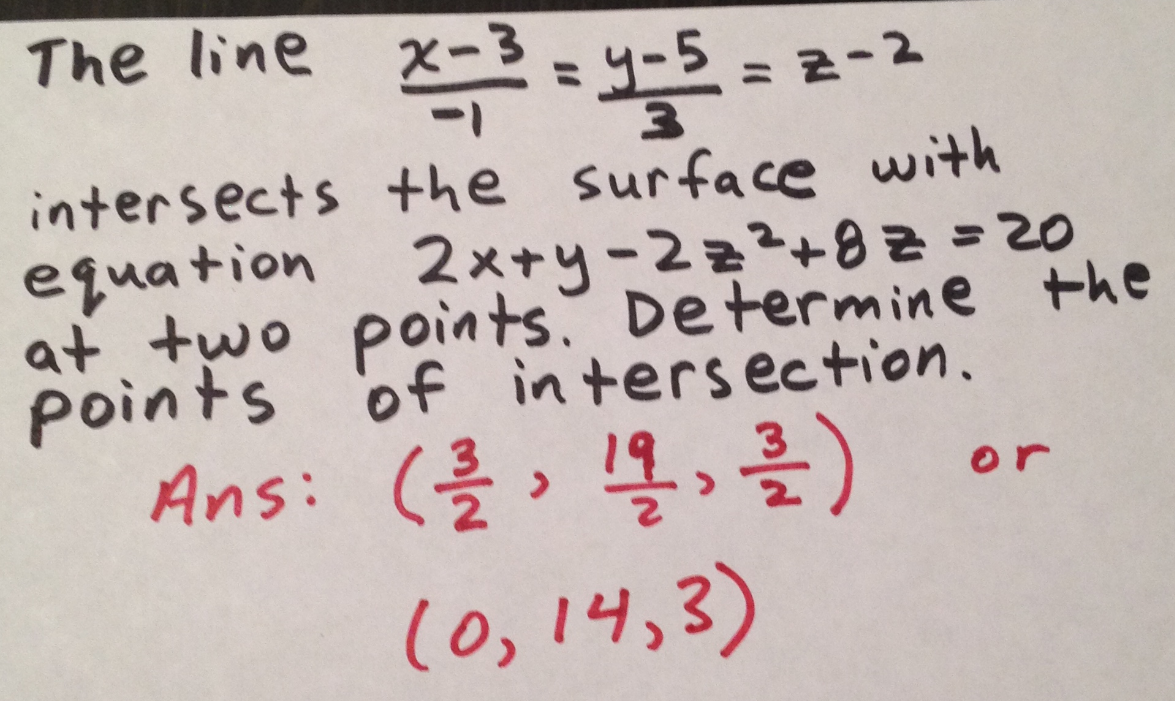 The line x-3/-1 = y-5/3 = z-2
intersects the surface with
equation 2x+y-2z²+8z=20
at two points. Determine the
points of intersection.
Ans: (3/2, 19/2, 3/2) or
(0, 14, 3)